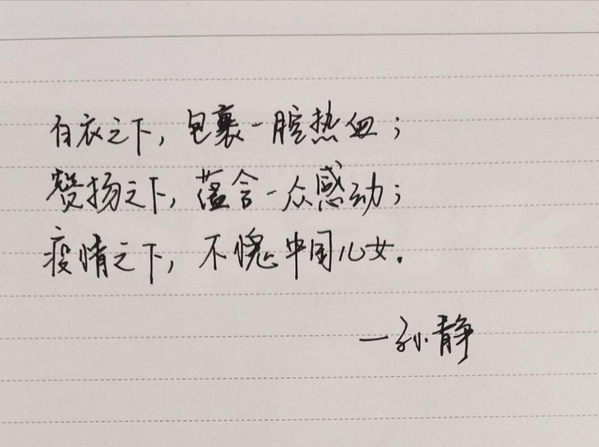 白衣之下，包裹一腔热血；
赞扬之下，蕴含一众感动；
疫情之下，不愧中国儿女。
—孙静